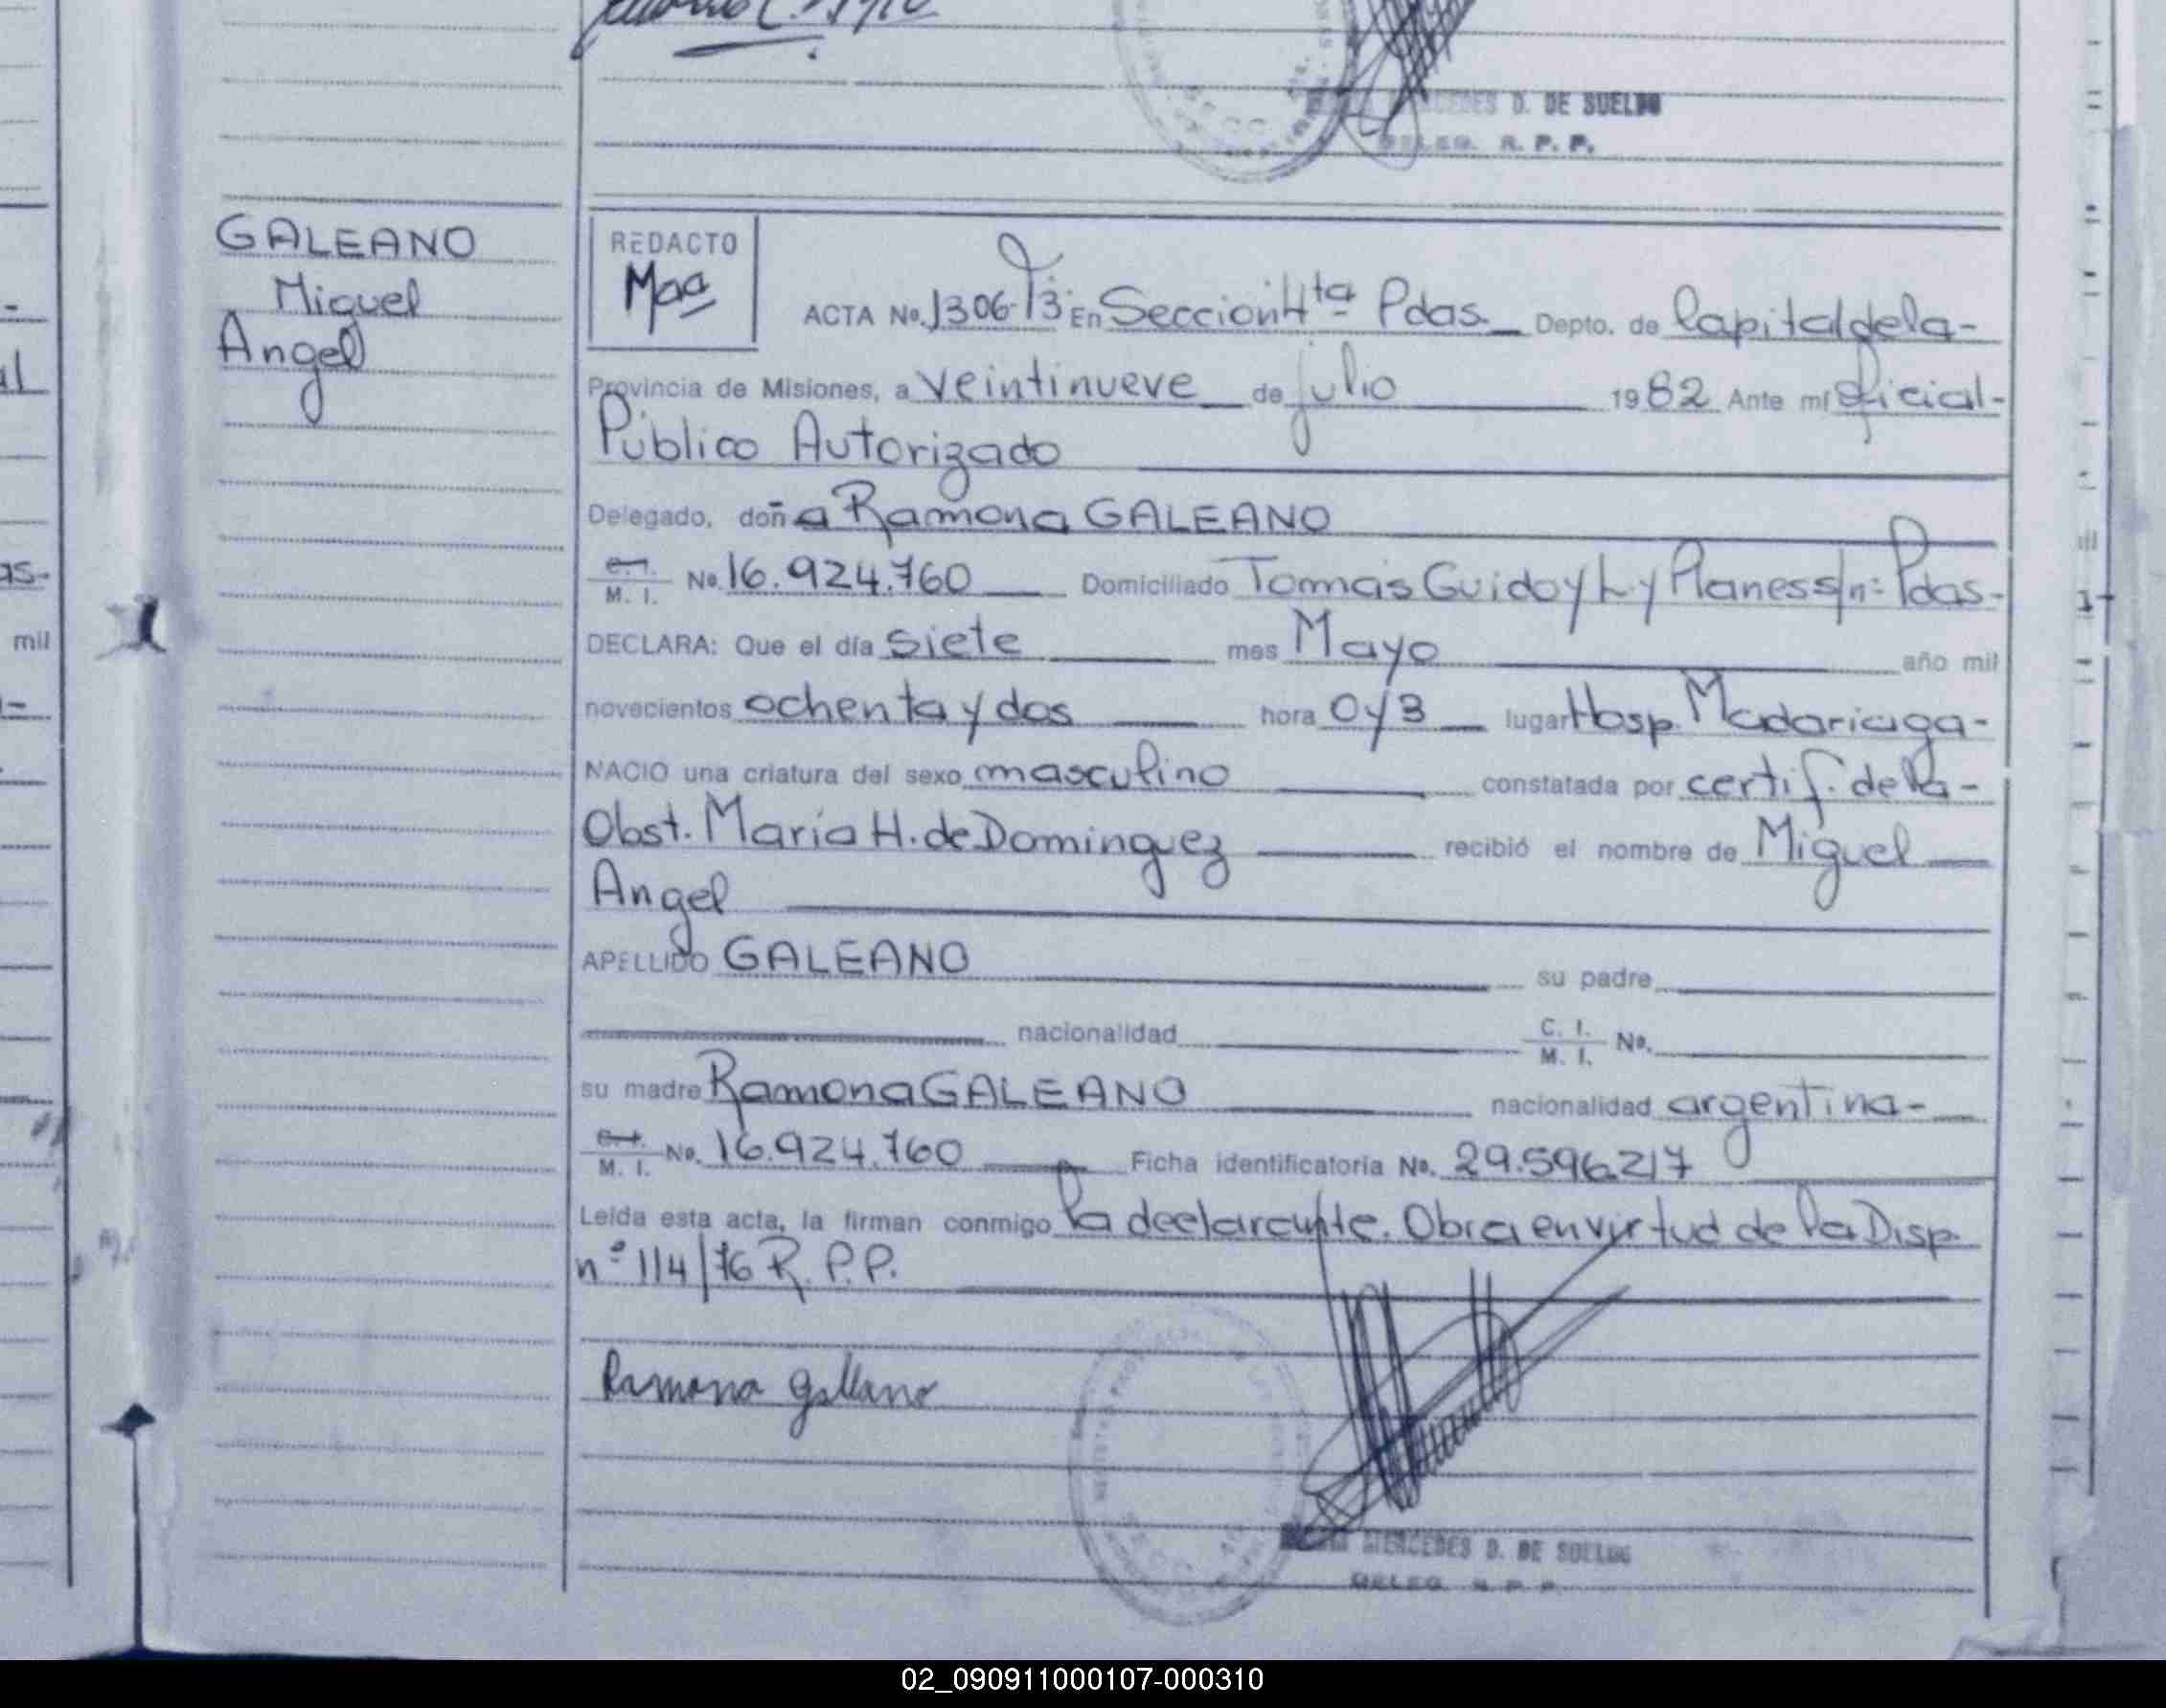 CEDES D. DE SUELDO
DELEG. R. P. P.
GALEANO
Miguel
Angel
REDACTO
ACTA No. 1306-T3: En Seccion 4ta Pdas. Depto. de Capital de la-
Provincia de Misiones, a veintinueve de julio 1982 Ante mí oficial-
Público Autorizado
Delegado, doña Ramona GALEANO
C.I. M. I. No. 16.924.760 Domiciliado Tomás Guido y L y Planes s/nº Pdas-
DECLARA: Que el día siete mes Mayo año mil
novecientos ochenta y dos hora 0y3 lugar Hosp. Madariaga-
NACIO una criatura del sexo masculino constatada por certif. de la-
Obst. María H. de Dominguez recibió el nombre de Miguel
Angel
APELLIDO GALEANO su padre
nacionalidad C. I. M. I. No.
su madre Ramona GALEANO nacionalidad argentina-
C.I. M. I. No. 16.924.760 Ficha identificatoria No. 29.596217
Leída esta acta, la firman conmigo la declarante. Obra en virtud de la Disp.
nº 114/76 R. P.P.
Ramona Galeano
MERCEDES D. DE SUELDO
DELEG. R. P. P.
mil
02_090911000107-000310